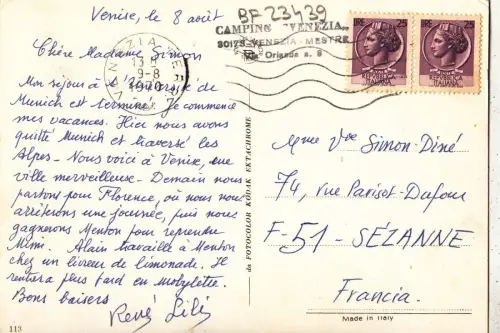 Venise, le 8 août
BF 23439
CAMPING VENEZIA
30173 VENEZIA - MESTRE
Orlanda a. 8
VENEZIA
13
9-8
1970
LIRE 25
LIRE 25
REPVBBLICA
ITALIANA
Chère Madame Simon
Mon séjour à l'Université de
Munich est terminé. Je commence
mes vacances. Hier nous avons
quitté Munich et traversé les
Alpes - Nous voici à Venise, une
ville merveilleuse - Demain nous
partons pour Florence, où nous nous
arrêterons une journée, puis nous
gagnerons Menton pour reprendre
Mimi. Alain travaille à Menton
chez un livreur de limonade. Il
rentrera plus tard en Mobylette.
Bons baisers
René Lili
113
da FOTOCOLOR KODAK EKTACHROME
Mme Vve Simon-Diné
74, rue Pariset-Dufour
F-51-SÉZANNE
Francia.
Made in Italy